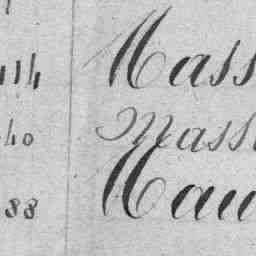 414 Mass
40 Mass
88 Mau